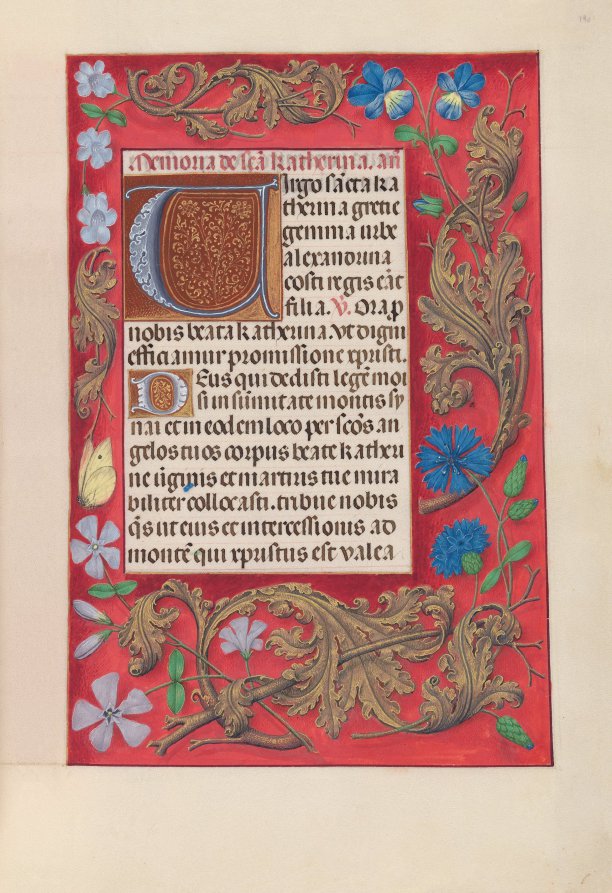 190
Memoria de scā Katherina. añ
Uirgo sācta ka
therina gretie
gemma urbe
alexandrina
costi regis eāt
filia. V̄. Ora p̱
nobis beata katherina. Vt digni
efficiamur promissione xpristi.
Deus qui dedisti legē moi
si in sūmitate montis sy
nai et in eod em loco per scōs an
gelos tuos corpus beate katheri
ne ūginis et martiris tue mira
biliter collocasti. tribue nobis
q̄s ut eius et intercessionis ad
montē qui xpristus est valea